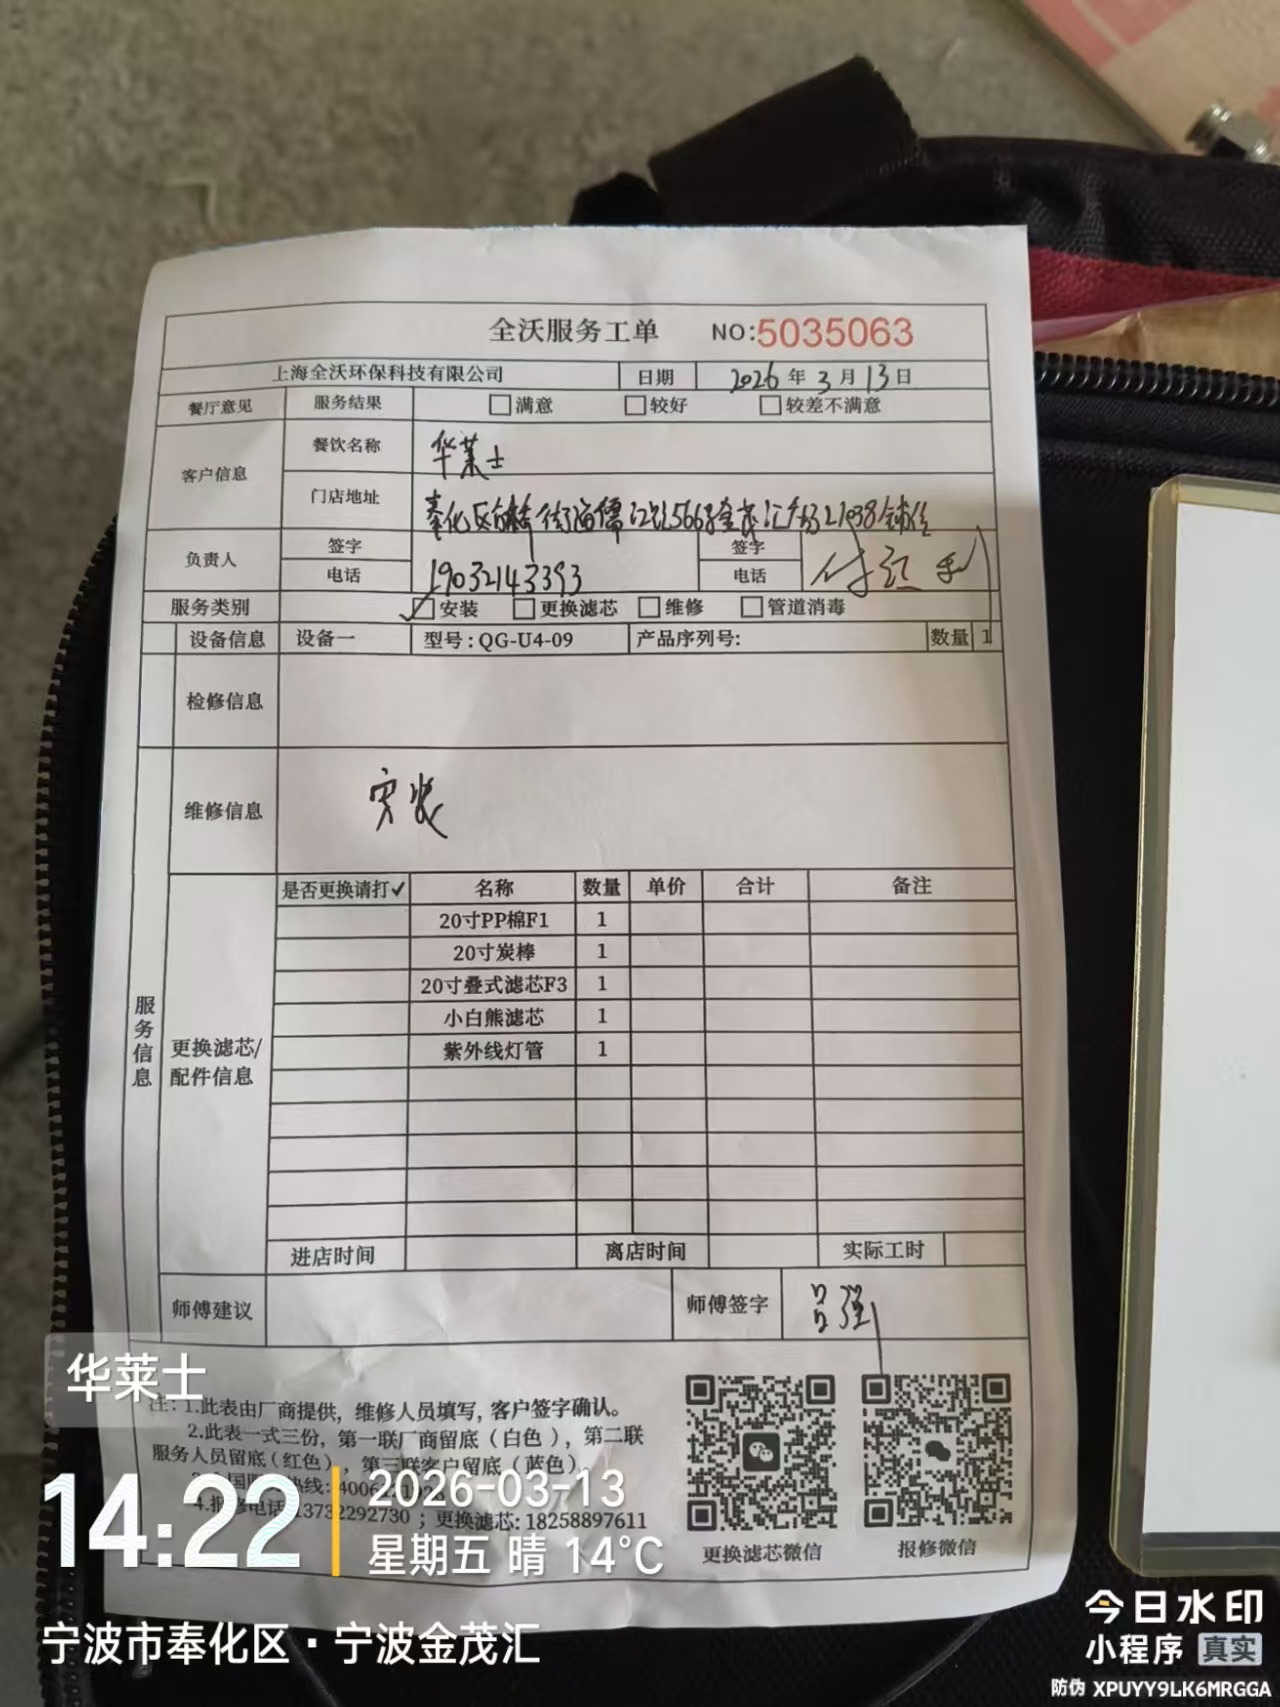 全沃服务工单 NO:5035063
上海全沃环保科技有限公司 日期 2026年3月13日
餐厅意见 服务结果 满意 较好 较差不满意
客户信息 餐饮名称 华莱士
门店地址 奉化区 街道 江路566号金茂汇广场2 铺位
负责人 签字 签字
电话 19032143393 电话
服务类别 ✓安装 更换滤芯 维修 管道消毒
设备信息 设备一 型号:QG-U4-09 产品序列号: 数量 1
检修信息
维修信息 安装
服务信息
更换滤芯/配件信息
是否更换请打✓ 名称 数量 单价 合计 备注
20寸PP棉F1 1
20寸炭棒 1
20寸叠式滤芯F3 1
小白熊滤芯 1
紫外线灯管 1
进店时间 离店时间 实际工时
师傅建议 师傅签字 吕强
注:1.此表由厂商提供,维修人员填写,客户签字确认。
2.此表一式三份,第一联厂商留底(白色),第二联
服务人员留底(红色),第三联客户留底(蓝色)。
4.报修电话:13732292730;更换滤芯:18258897611
更换滤芯微信 报修微信
华莱士
14:22
2026-03-13
星期五 晴 14°C
宁波市奉化区·宁波金茂汇
今日水印
小程序 真实
防伪 XPUYY9LK6MRGGA